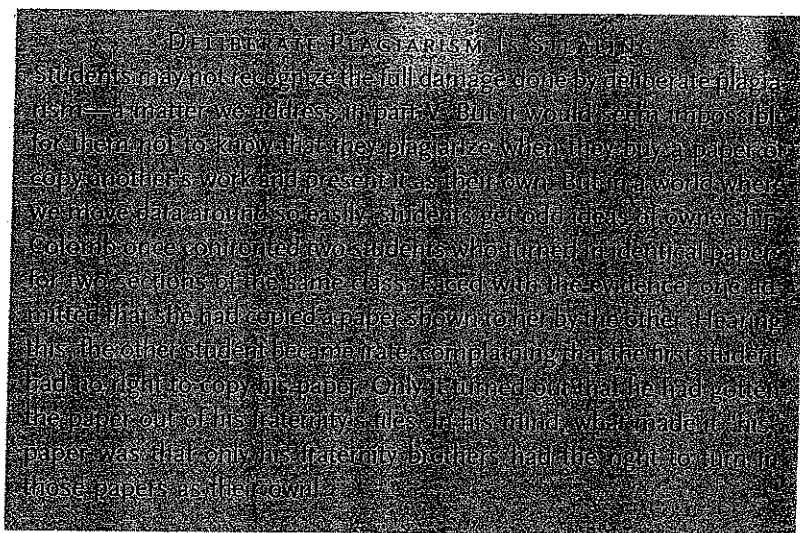 DELIBERATE PLAGIARISM IS STEALING
students may not recognize the full damage done by deliberate plagia-
rism—a matter we address in part V. But it would seem impossible
for them not to know that they plagiarize when they buy a paper or
copy another's work and present it as their own. But in a world where
we move data around so easily, students get odd ideas of ownership.
Colomb once confronted two students who turned in identical papers
for two sections of the same class. Faced with the evidence, one ad-
mitted that she had copied a paper shown to her by the other. Hearing
this, the other student became irate, complaining that the first student
had no right to copy his paper. Only it turned out that he had gotten
the paper out of his fraternity's files. In his mind, what made it "his"
paper was that only his fraternity brothers had the right to turn in
those papers as their own!